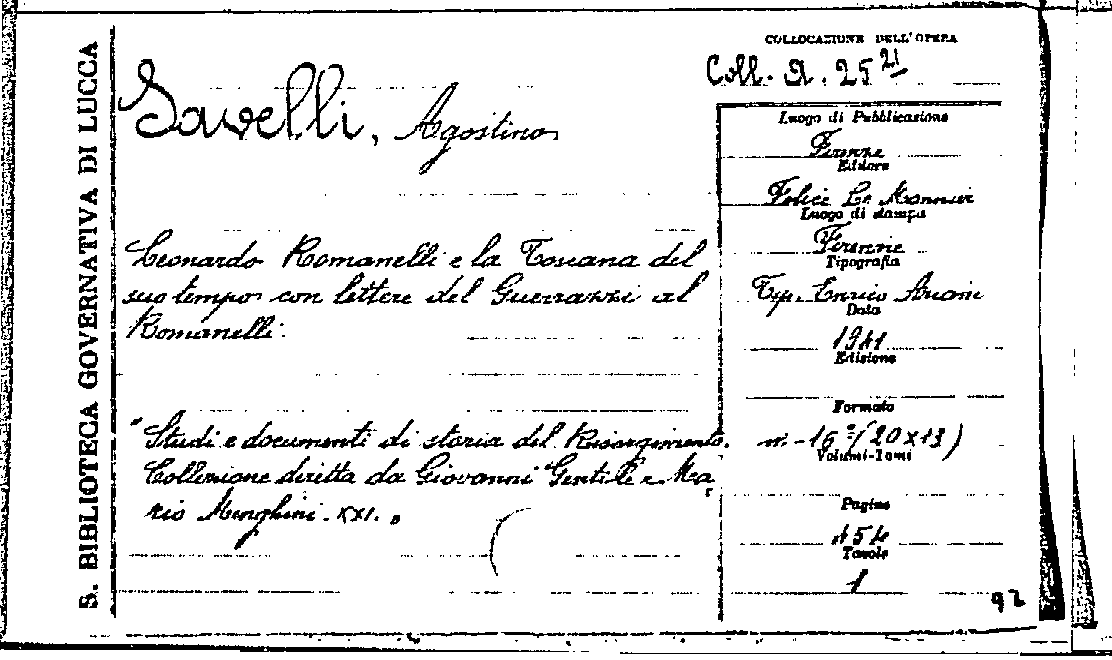 S. BIBLIOTECA GOVERNATIVA DI LUCCA
COLLOCAZIONE DELL'OPERA
Coll. A. 25 21
Savelli, Agostino
Leonardo Romanelli e la Toscana del
suo tempo con lettere del Guerrazzi al
Romanelli.
"Studi e documenti di storia del Risorgimento.
Collezione diretta da Giovanni Gentile e Ma
rio Menghini. XXI."
Luogo di Pubblicazione
Firenze
Editore
Felice Le Monnier
Luogo di stampa
Firenze
Tipografia
Tip. Enrico Ariani
Data
1941
Edizione
Formato
in-16º (20x13)
Volumi-Tomi
Pagine
154
Tavole
1
92